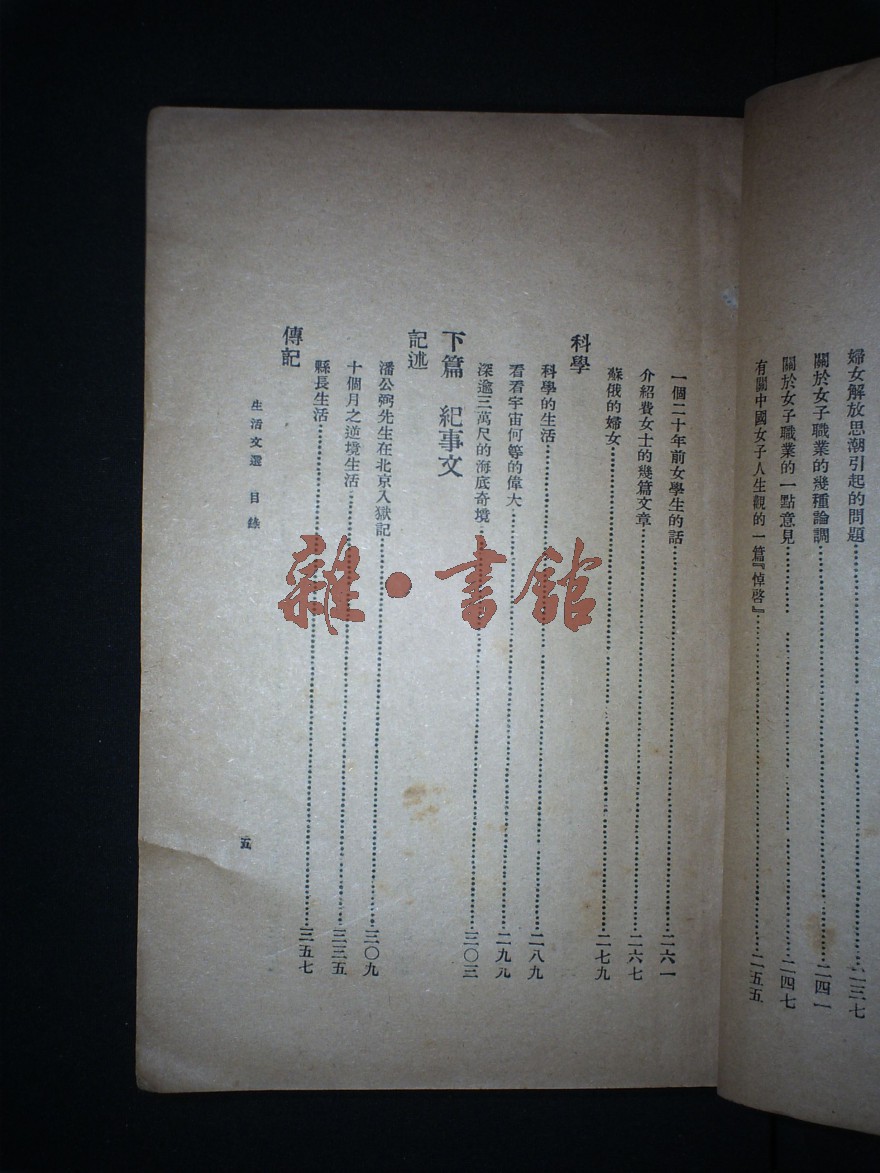 婦女解放思潮引起的問題……二三七
關於女子職業的幾種論調……二四一
關於女子職業的一點意見……二四七
有關中國女子人生觀的一篇『悼啓』……二五五
一個二十年前女學生的話……二六一
介紹費女士的幾篇文章……二六七
蘇俄的婦女……二七九
科學
科學的生活……二八九
看看宇宙何等的偉大……二九九
深逾三萬尺的海底奇境……三〇三
下篇 紀事文
記述
潘公弼先生在北京入獄記……三〇九
十個月之逆境生活……三三五
縣長生活……三五七
傳記
生活文選 目錄
五
雜·書館